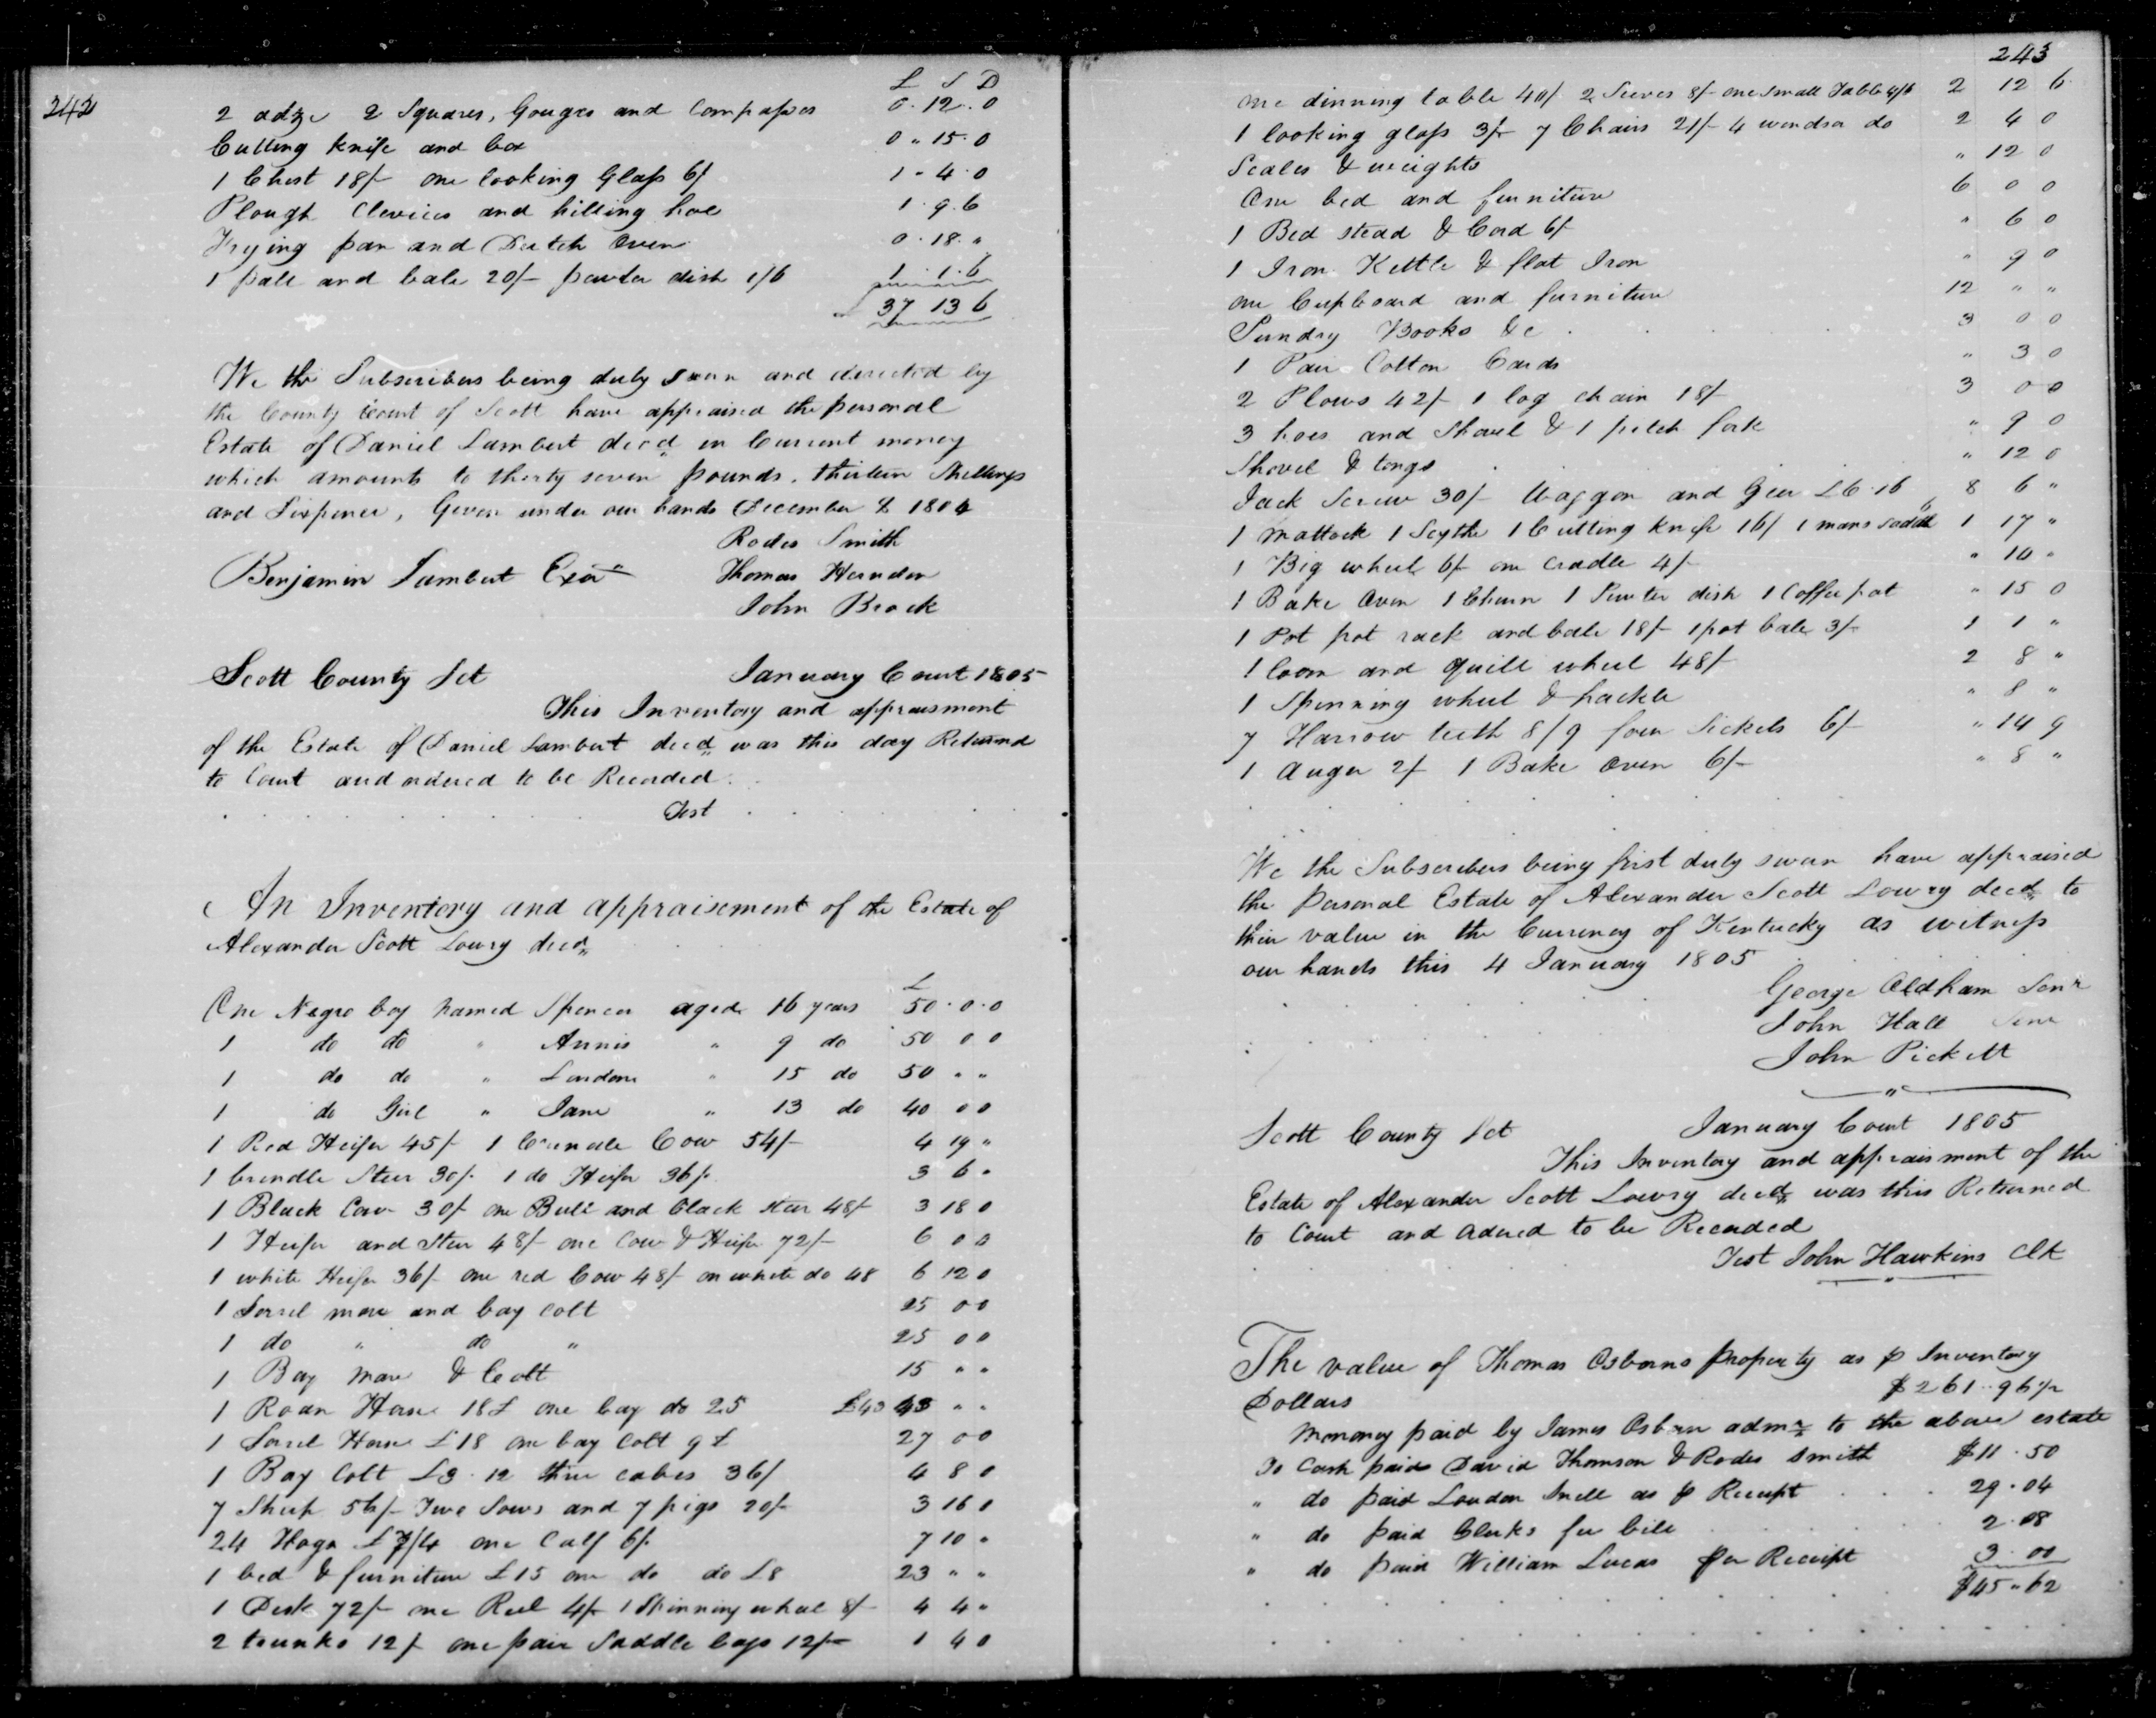 242
£ S D
2 adze 2 Squares, Gouges and Compasses 0.12.0
Cutting Knife and box 0 " 15.0
1 Chest 18/- one looking Glass 6/ 1 - 4.0
Plough Clevices and hilling hoe 1.9.6
Frying pan and Dutch Oven 0.18."
1 pale and bale 20/- pewter dish 1/6 1.1.6
37 13 6
We the Subscribers being duly sworn and directed by
the County Court of Scott have appraised the personal
Estate of Daniel Lambert decd in Current money
which amounts to thirty seven pounds, thirteen Shillings
and Sixpence, Given under our hands December 1804
Rodes Smith
Benjamin Lambert Exor Thomas Herndon
John Brock
Scott County Sct January Court 1805
This Inventory and appraisment
of the Estate of Daniel Lambert decd was this day Returnd
to Court and ordered to be Recorded.
Test
An Inventory and appraisement of the Estate of
Alexander Scott Lowry decd
£
One Negro boy named Spencer aged 16 years 50.0.0
1 do do " Annis " 9 do 50 0 0
1 do do " London " 15 do 50 " "
1 do Girl " Jane " 13 do 40 0 0
1 Red Heifer 45/- 1 brindle Cow 54/- 4 19 "
1 brindle Steer 30/. 1 do Heifer 36/. 3 6 "
1 Black Cow 30/ one Bull and black steer 48/- 3 18 0
1 Heifer and Steer 48/- one Cow & Heifer 72/- 6 0 0
1 white Heifer 36/- one red Cow 48/- on white do 48 6 12 0
1 Sorrel mare and bay colt 25 0 0
1 do " do " 25 0 0
1 Bay Mare & Colt 15 " "
1 Roan Horse 18£ one bay do 25 £43 43 " "
1 Sorrel Horse £18 one bay Colt 9£ 27 0 0
1 Bay Colt £3.12 three calves 36/ 4 8 0
7 Sheep 56/- Two Sows and 7 pigs 20/- 3 16 0
24 Hogs £7/4 one Calf 6/. 7 10 "
1 bed & furniture £15 one do do £8 23 " "
1 Desk 72/- one Reel 4/- 1 Spinning wheel 8/- 4 4 "
2 trunks 12/ one pair Saddle bags 12/- 1 4 0
243
one dinning table 40/. 2 Sieves 8/- one small Table 4/6 2 12 6
1 looking glass 3/- 7 Chairs 21/- 4 windsor do 2 4 0
Scales & weights " 12 0
One bed and furniture 6 0 0
1 Bed stead & Cord 6/ " 6 0
1 Iron Kettle & flat Iron " 9 0
one Cupboard and furniture 12 " "
Sundry Books &c 3 0 0
1 Pair Cotton Cards " 3 0
2 Plows 42/- 1 log chain 18/ 3 0 0
3 hoes and Shovel & 1 pitch fork " 9 0
Shovel & tongs " 12 0
Jack Screw 30/- Waggon and Geer £6.16 8 6 "
1 mattock 1 Scythe 1 Cutting knife 16/ 1 mans saddle 1 17 "
1 Big wheel 6/- one cradle 4/- " 10 "
1 Bake Oven 1 Churn 1 Pewter dish 1 Coffee pot " 15 0
1 Pot pot rack and bale 18/- 1 pot bale 3/- 1 1 "
1 loom and quill wheel 48/ 2 8 "
1 Spinning wheel & hackle " 8 "
7 Harrow teeth 8/9 four Sickels 6/- " 14 9
1 Auger 2/- 1 Bake Oven 6/- " 8 "
We the Subscribers being first duly sworn have appraised
the Personal Estate of Alexander Scott Lowry decd to
their value in the Currency of Kentucky as witness
our hands this 4 January 1805
George Oldham Senr
John Hall Senr
John Pickett
Scott County Sct January Court 1805
This Inventory and appraisment of the
Estate of Alexander Scott Lowry decd was this Returned
to Court and ordered to be Recorded
Test John Hawkins Clk
The value of Thomas Osborns property as p Inventory
Dollars $261.96 1/2
Monony paid by James Osborn admr to the above estate
To Cash paid David Thomson & Rodes Smith $11.50
" do paid Loudon Snell as p Receipt 29.04
" do paid Clerks fee bill 2.08
" do paid William Lucas per Receipt 3.00
$45.62